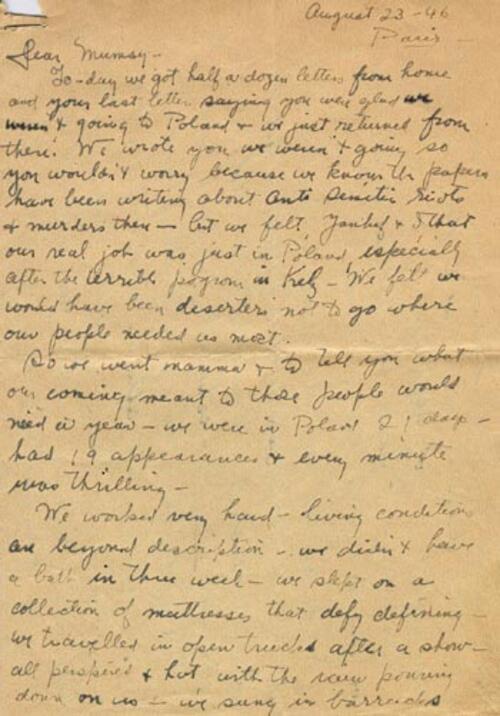 August 23-46
Paris
Dear Mumsy-
To-day we got half a dozen letters from home
and your last letter saying you were glad we
weren't going to Poland & we just returned from
there! We wrote you we weren't going so
you wouldn't worry because we know the papers
have been writing about anti semitic riots
& murders there - but we felt, & I that
our real job was just in Poland, especially
after the terrible pogrom in - We felt we
would have been deserters not to go where
our people needed us most.
So we went mamma & to tell you what
our coming meant to those people would
need a year - we were in Poland 21 days -
had 19 appearances & every minute
was thrilling -
We worked very hard - living conditions
are beyond description - we didn't have
a bath in three week - we slept on a
collection of mattresses that defy defining -
we travelled in open trucks after a show -
all perspired & hot with the rain pouring
down on us - we sung in barracks